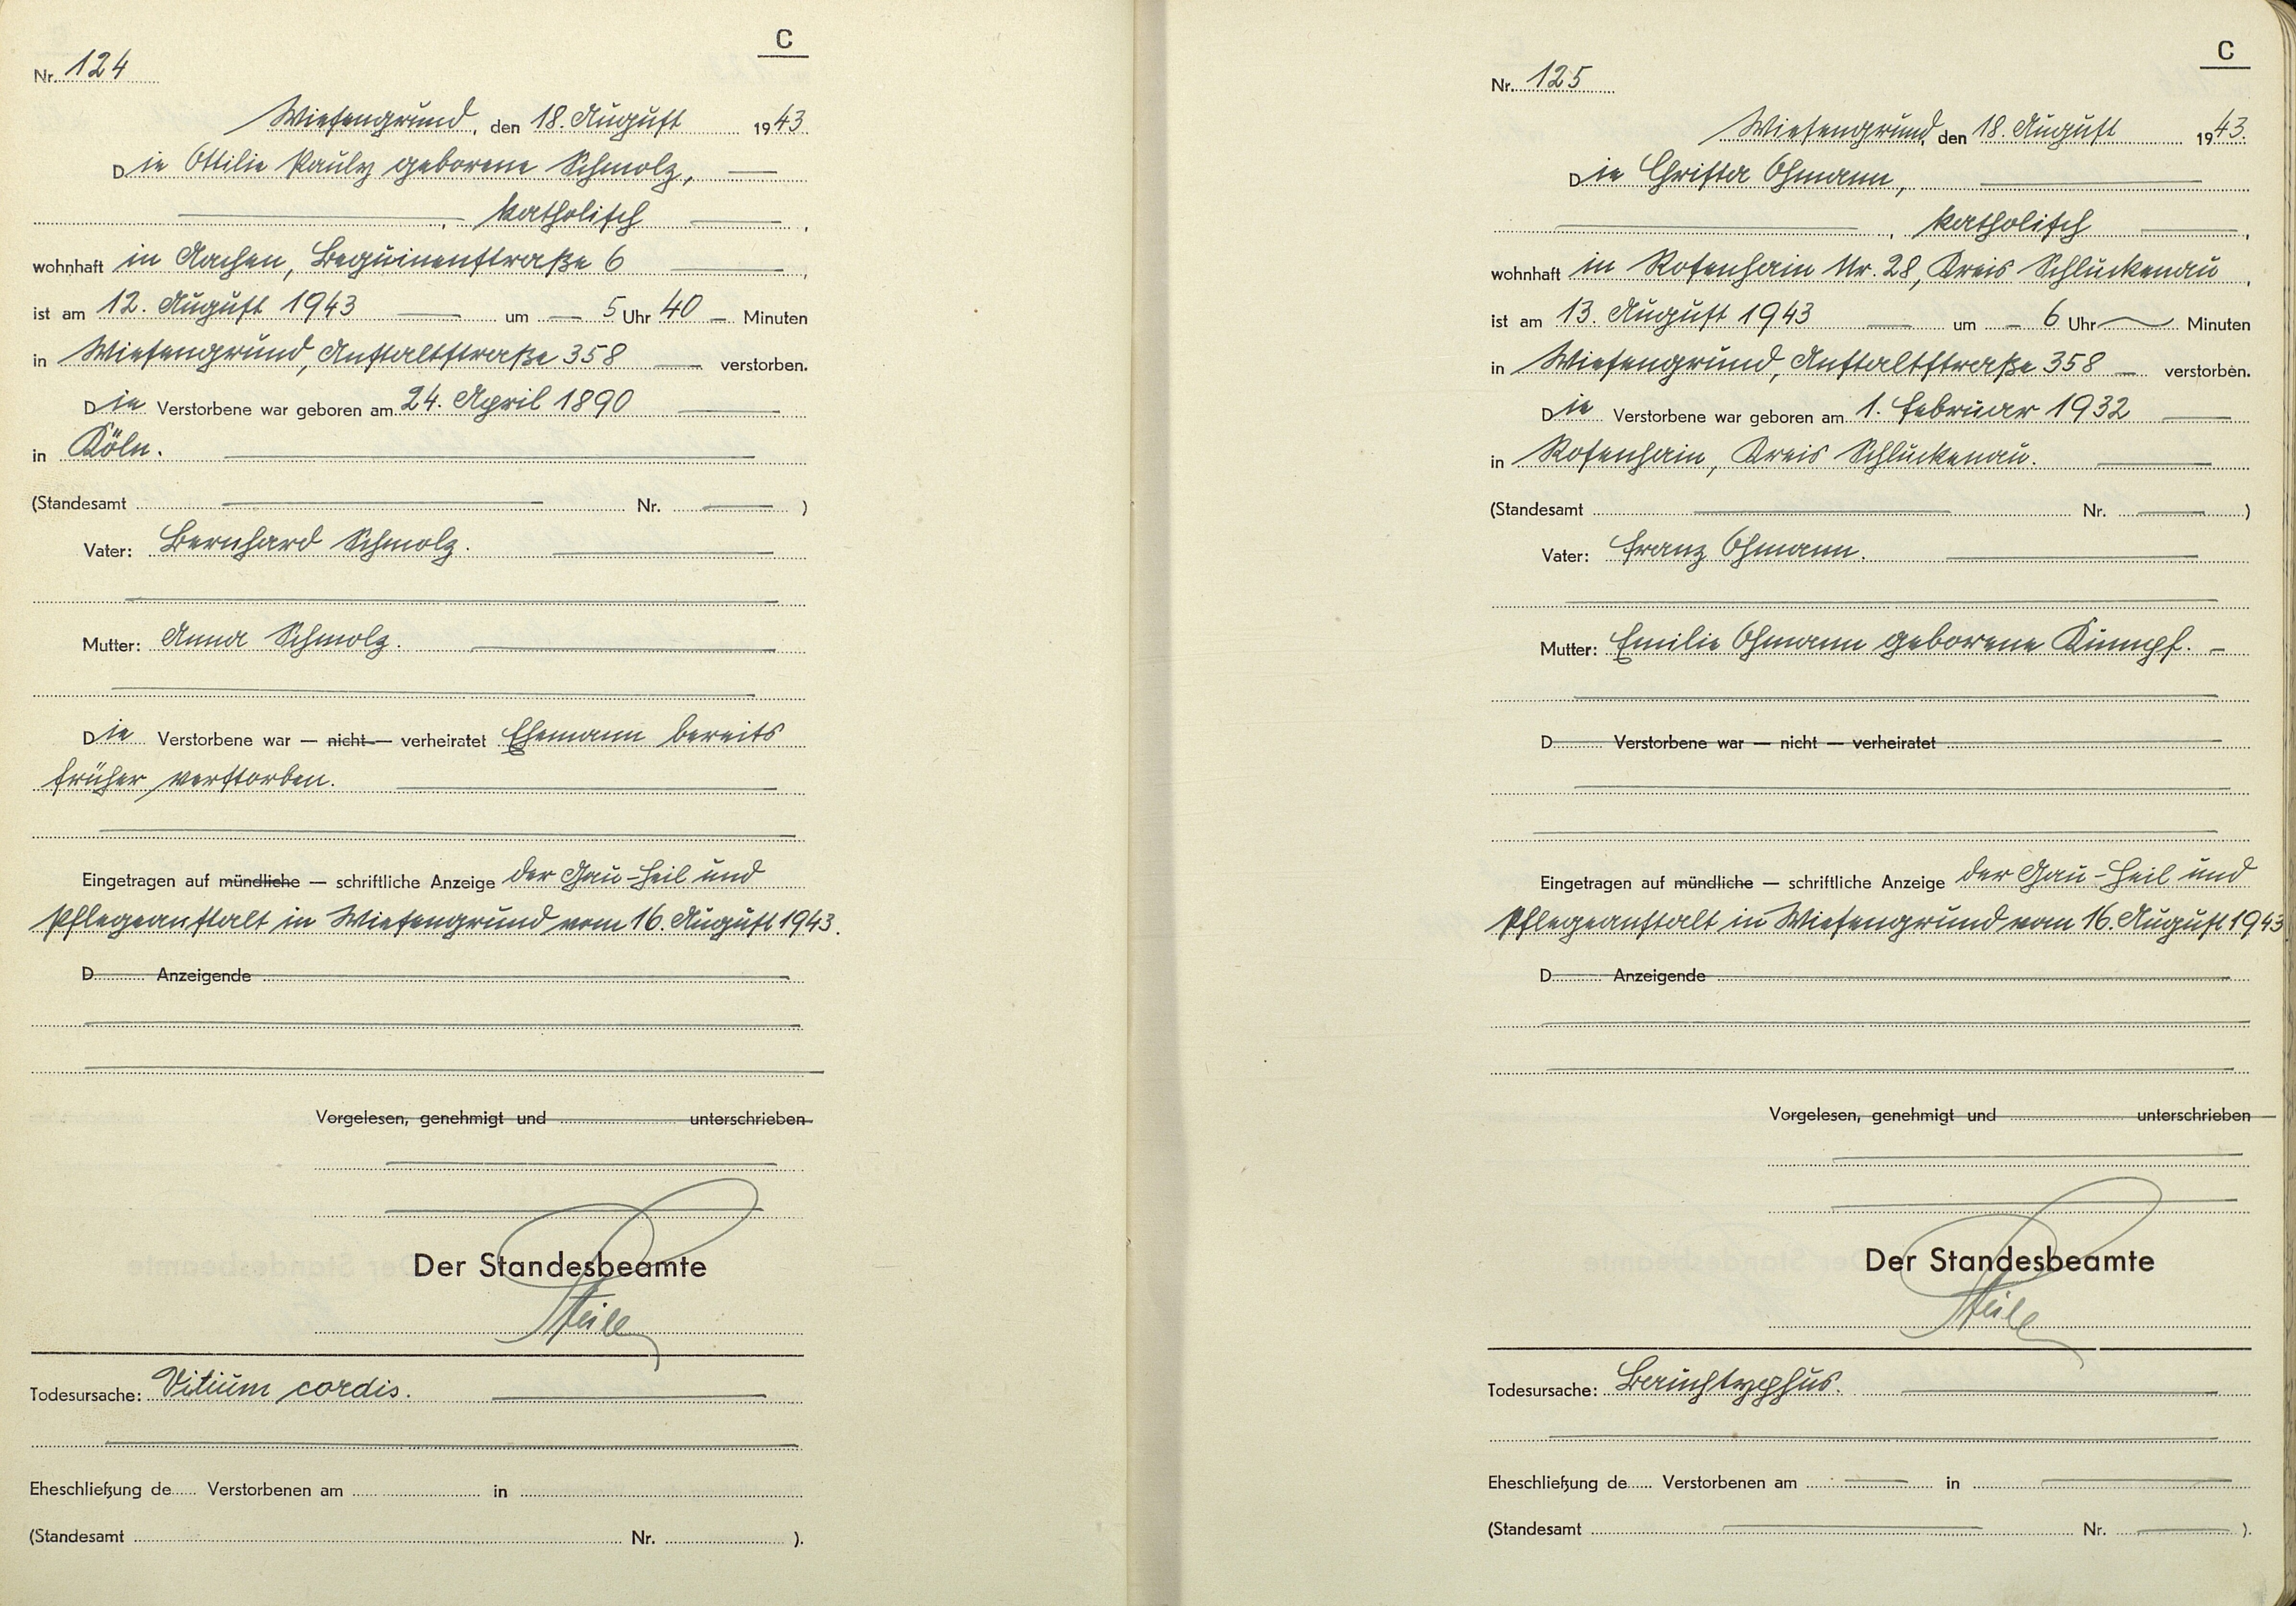 C
Nr. 124
Wiesengrund, den 18. August 1943.
Die Ottilie Pauly geborene Schmolz,
, katholisch ,
wohnhaft in Aachen, Beguinenstraße 6 ,
ist am 12. August 1943 um 5 Uhr 40 Minuten
in Wiesengrund, Anstaltstraße 358 verstorben.
Die Verstorbene war geboren am 24. April 1890
in Köln.
(Standesamt Nr. )
Vater: Bernhard Schmolz.
Mutter: Anna Schmolz.
Die Verstorbene war — nicht — verheiratet Ehemann bereits
früher verstorben.
Eingetragen auf mündliche — schriftliche Anzeige der Gau-Heil und
Pflegeanstalt in Wiesengrund vom 16. August 1943.
D Anzeigende
Vorgelesen, genehmigt und unterschrieben
Der Standesbeamte
Todesursache: Vitium cordis.
Eheschließung de Verstorbenen am in
(Standesamt Nr. ).
C
Nr. 125
Wiesengrund, den 18. August 1943.
Die Christa Ohmann,
, katholisch ,
wohnhaft in Rosenhain Nr. 28, Kreis Schluckenau ,
ist am 13. August 1943 um 6 Uhr Minuten
in Wiesengrund, Anstaltstraße 358 verstorben.
Die Verstorbene war geboren am 1. Februar 1932
in Rosenhain, Kreis Schluckenau.
(Standesamt Nr. )
Vater: Franz Ohmann.
Mutter: Emilie Ohmann geborene Kumpf.
D Verstorbene war — nicht — verheiratet
Eingetragen auf mündliche — schriftliche Anzeige der Gau-Heil und
Pflegeanstalt in Wiesengrund vom 16. August 1943
D Anzeigende
Vorgelesen, genehmigt und unterschrieben
Der Standesbeamte
Todesursache: Bauchtyphus.
Eheschließung de Verstorbenen am in
(Standesamt Nr. ).